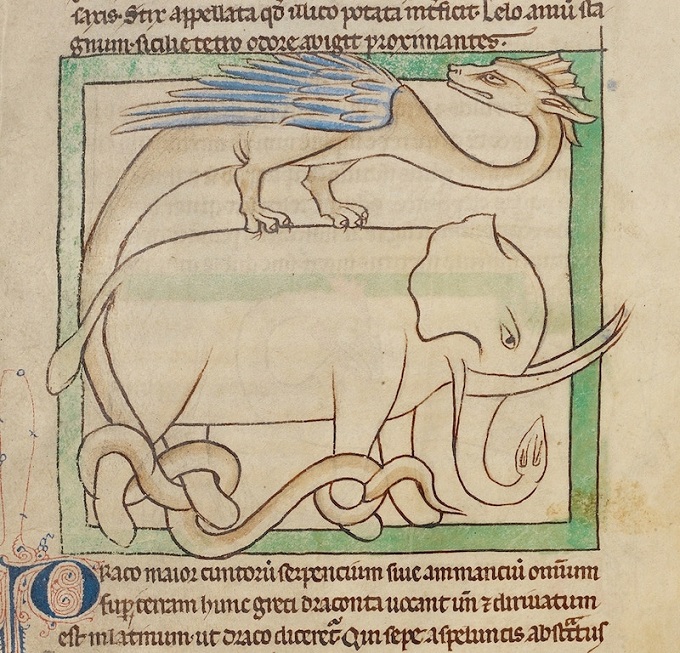 saxis. Stix appellata qđ illico potata intficit. Lelo amiū sta
gnum sicilie tetro odore abigit proximantes.
Draco maior cunctorū serpentium siue animanciū omnium
sup terram hunc greci draconta uocant un̄ ⁊ diriuatum
est inlatinum ut draco diceret̄. Qui sepe aspeluncis abstractus